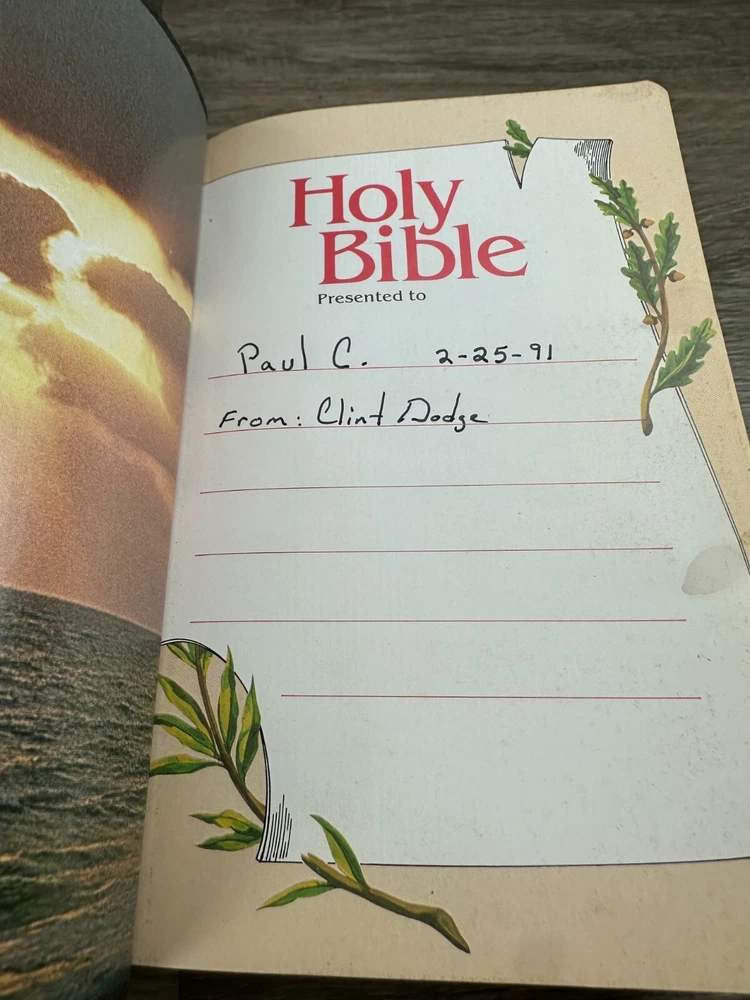 Holy
Bible
Presented to
Paul C. 2-25-91
From: Clint Dodge